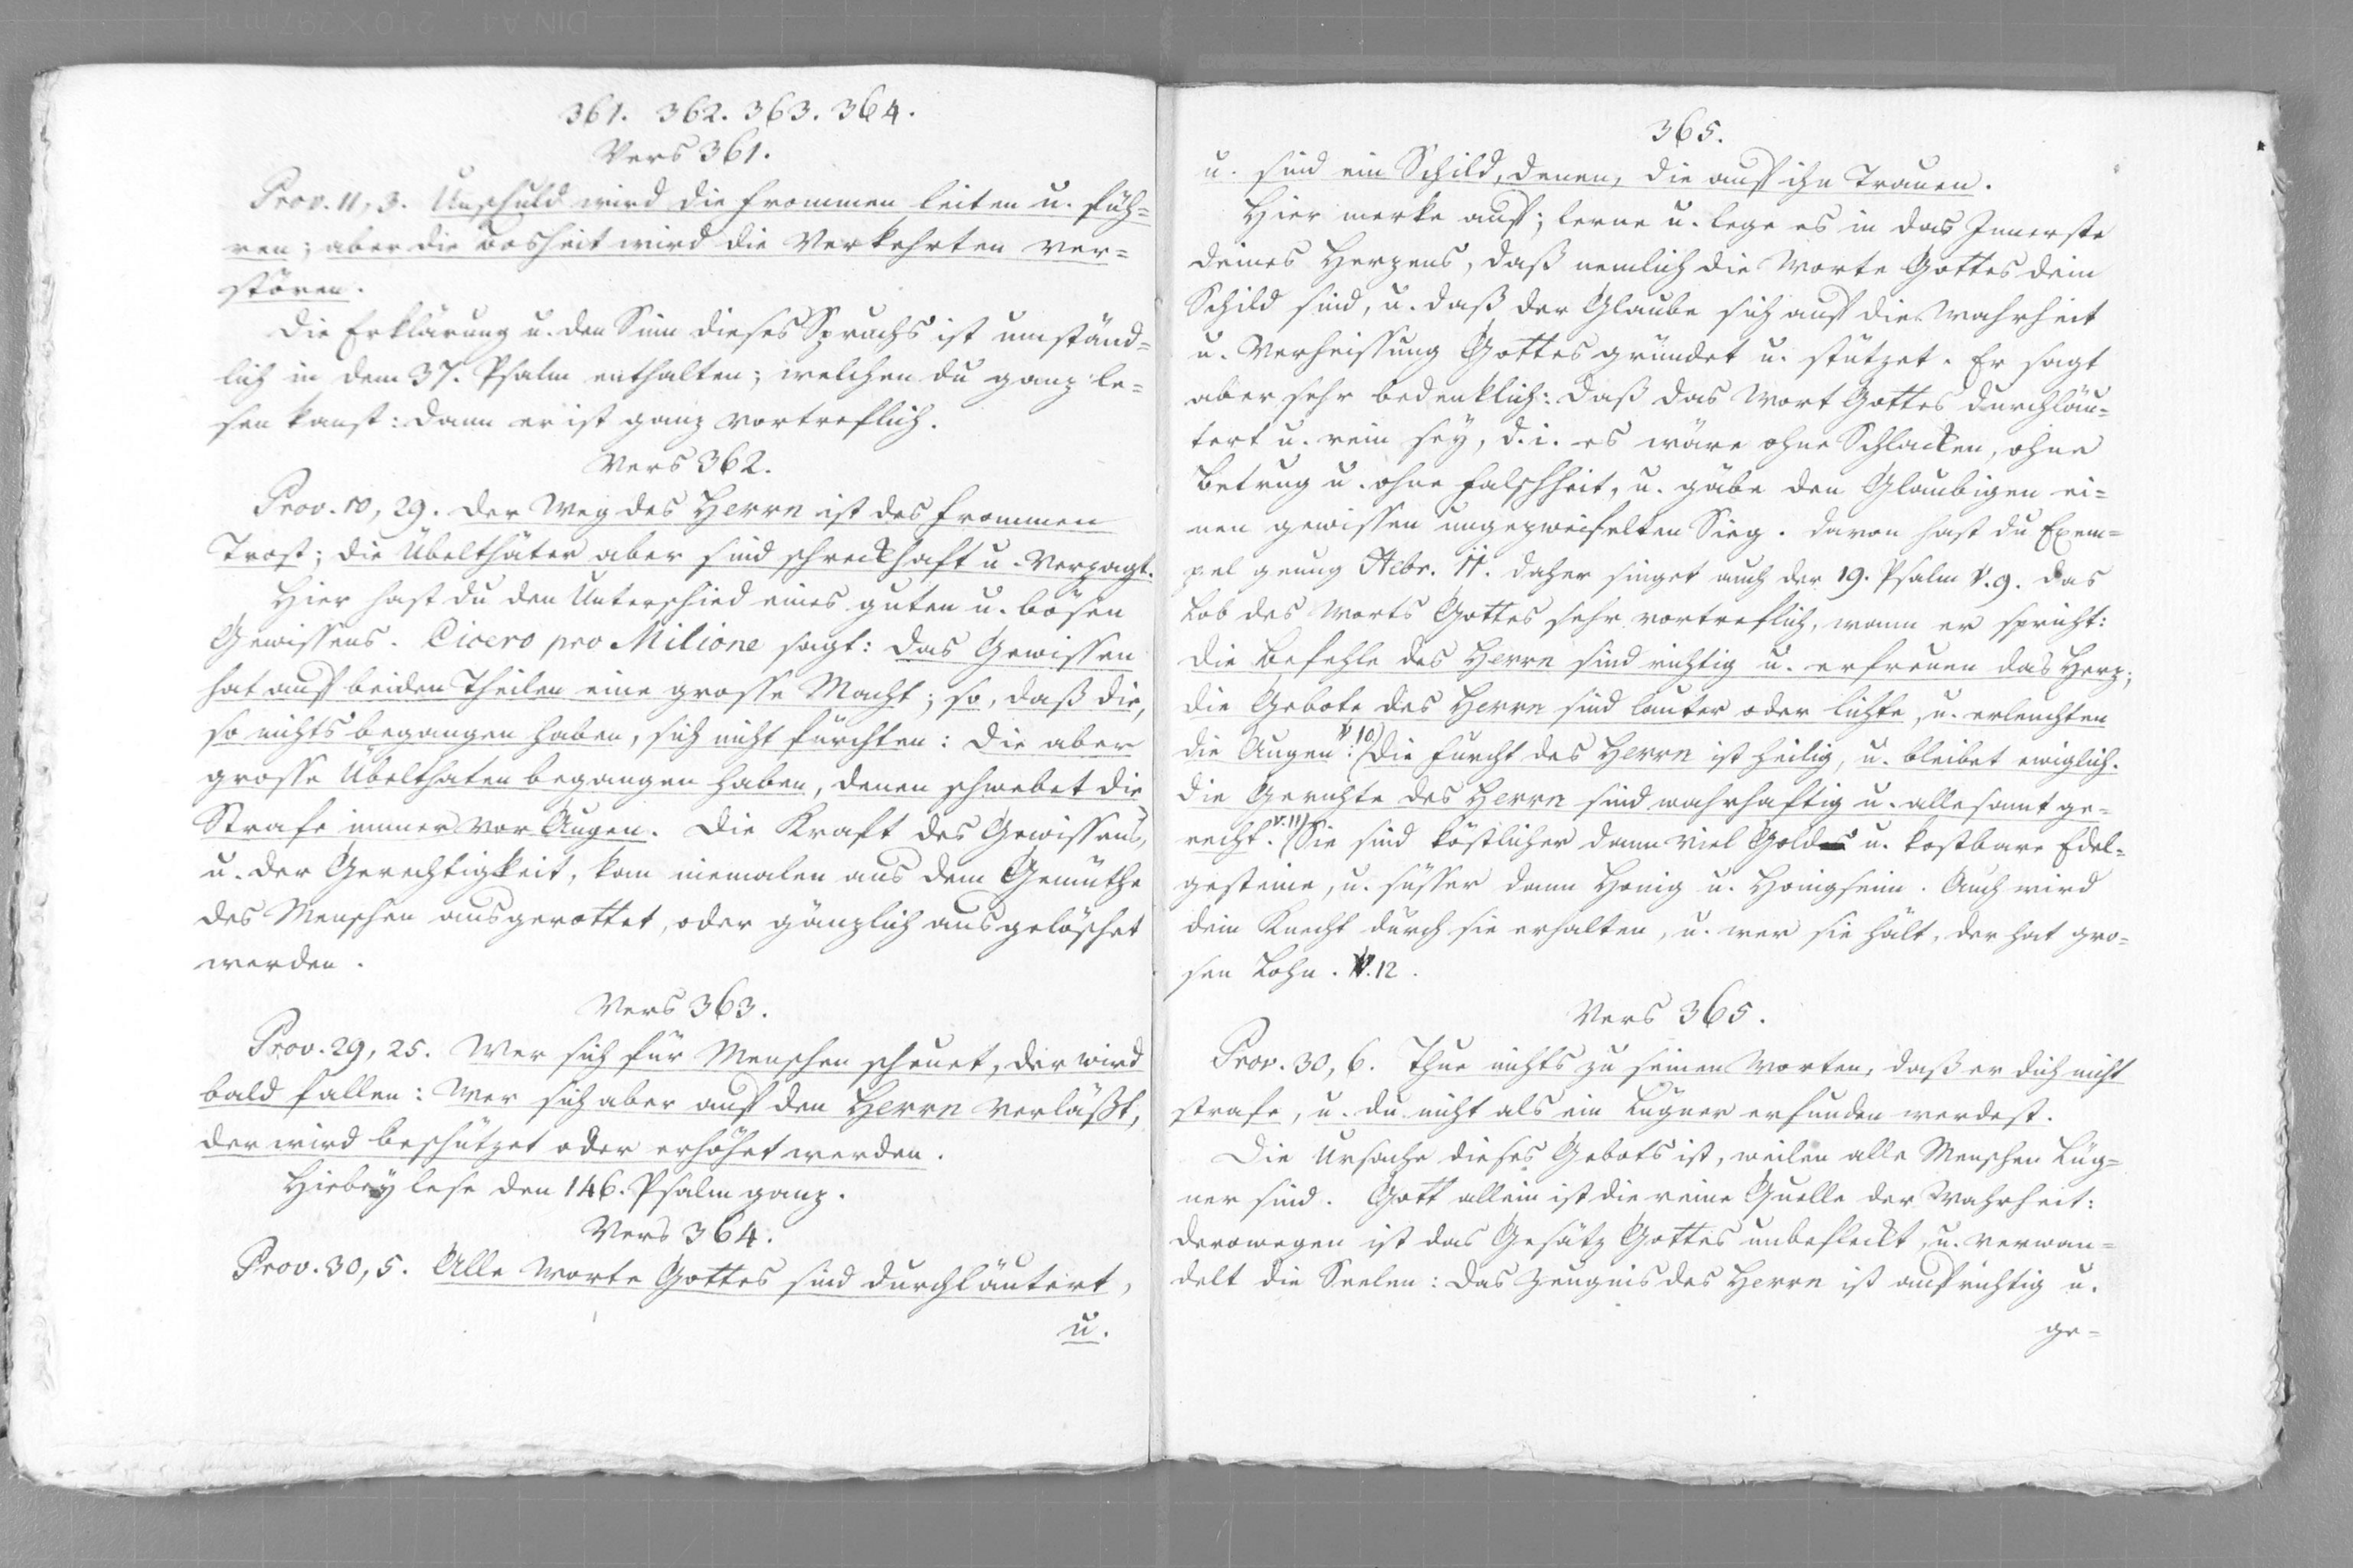 361. 362. 363. 364.
Vers 361.
Prov. 11, 3. Unschuld wird die frommen leiten u. füh=
ren; aber die bosheit wird die Verkehrten ver=
stören.
Die Erklärung u. den Sinn dieses Spruchs ist umständ=
lich in dem 37. Psalm enthalten; welchen du ganz le=
sen kanst: dann er ist ganz vortreflich.
Vers 362.
Prov. 10, 29. Der Weg des Herrn ist des frommen
Trost; die Übelthäter aber sind schreckhaft u. verzagt.
Hier hast du den Unterschied eines guten u. bösen
Gewissens. Cicero pro Milione sagt: das Gewissen
hat auf beiden Theilen eine grosse Macht; so, daß die,
so nichts begangen haben, sich nicht fürchten: die aber
grosse Übelthaten begangen haben, denen schwebet die
Strafe immer vor Augen. Die Kraft des Gewissens,
u. der Gerechtigkeit, kan niemalen aus dem Gemüthe
des Menschen ausgerottet, oder gänzlich ausgelöschet
werden.
Vers 363.
Prov. 29, 25. Wer sich für Menschen scheuet, der wird
bald fallen: Wer sich aber auf den Herrn verläßt,
der wird beschützet oder erhöhet werden.
Hiebey lese den 146. Psalm ganz.
Vers 364.
Prov. 30, 5. Alle Worte Gottes sind durchläutert,
u.
365.
u. sind ein Schild, denen, die auf ihn Trauen.
Hier merke auf; lerne u. lege es in das Innerste
deines Herzens, daß nemlich die Worte Gottes dein
Schild sind, u. daß der Glaube sich auf die Wahrheit
u. Verheissung Gottes gründet u. stützet. Er sagt
aber sehr bedenklich: daß das Wort Gottes durchläu=
tert u. rein sey, d. i. es wäre ohne Schlacken, ohne
betrug u. ohne falschheit, u. gäbe den Glaubigen ei=
nen gewissen ungezweifelten Sieg. Davon hast du Exem=
pel genug Hebr. 11. Daher singet auch der 19. Psalm V. 9. das
Lob des Worts Gottes sehr vortreflich, wann er spricht:
die Befehle des Herrn sind richtig u. erfreuen das Herz;
die Gebote des Herrn sind lauter oder lichte, u. erleuchten
die Augen: V. 10) Die furcht des Herrn ist heilig, u. bleibet ewiglich.
die Gerichte des Herrn sind wahrhaftig u. allesamt ge=
recht. V. 11) Sie sind köstlicher dann viel Gold u. kostbare Edel=
gesteine, u. süsser dann Honig u. Honigseim. Auch wird
dein Knecht durch sie erhalten, u. wer sie hält, der hat gro=
sen Lohn. V. 12.
Vers 365.
Prov. 30, 6. Thue nichts zu seinen Worten, daß er dich nicht
strafe, u. du nicht als ein Lügner erfunden werdest.
Die Ursache dieses Gebots ist, weilen alle Menschen Lüg=
ner sind. Gott allein ist die reine Quelle der Wahrheit:
derowegen ist das Gesätz Gottes unbefleckt, u. verwan=
delt die Seelen: das Zeugnis des Herrn ist aufrichtig u.
ge=